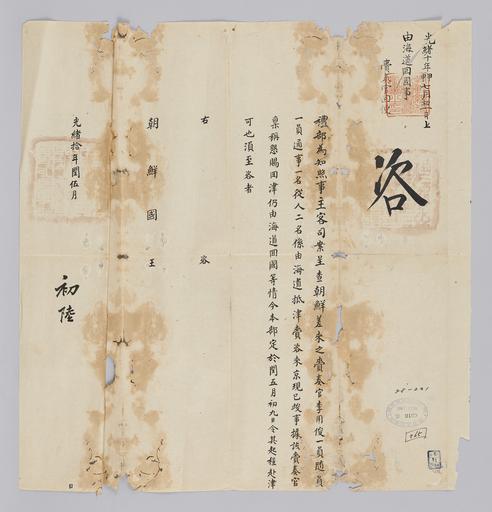 光緒十年七月初 日上
由海道回國事
咨
禮部為知照事主客司案呈查朝鮮差來之賫奏官李用俊一員隨員
一員通事一名從人二名係由海道抵津賫咨來京現已竣事據該賫奏官
稟稱懇賜回津仍由海道回國等情今本部定於閏五月初九日令其起程赴津
可也須至咨者
右 咨
朝鮮國王
光緒拾年閏伍月
初陸